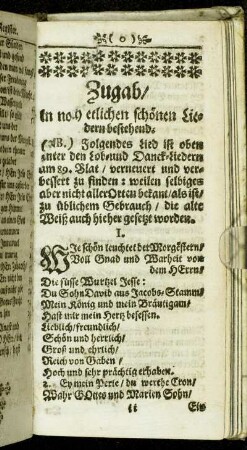 ( o )
Zugab/
In noch etlichen schönen Lie-
dern bestehend.
(NB.) Folgendes Lied ist oben
unter den Lob-und Danck-liedern
am 89. Blat / verneuert und ver-
bessert zu finden: weilen selbiges
aber nicht aller Orten bekant/als ist/
zu üblichem Gebrauch / die alte
Weiß auch hieher gesetzt worden.
I.
WJe schön leuchtet der Morgẽstern/
Voll Gnad und Warheit von
dem HErrn/
Die süsse Wurtzel Jesse:
Du Sohn David aus Jacobs-Stamm/
Mein König und mein Bräutigam/
Hast mir mein Hertz besessen.
Lieblich/freundlich/
Schön und herrlich/
Groß und ehrlich/
Reich von Gaben/
Hoch und sehr prächtig erhaben.
2. Ey mein Perle/ du werthe Cron/
Wahr GOttes und Marien Sohn/
ii Ein